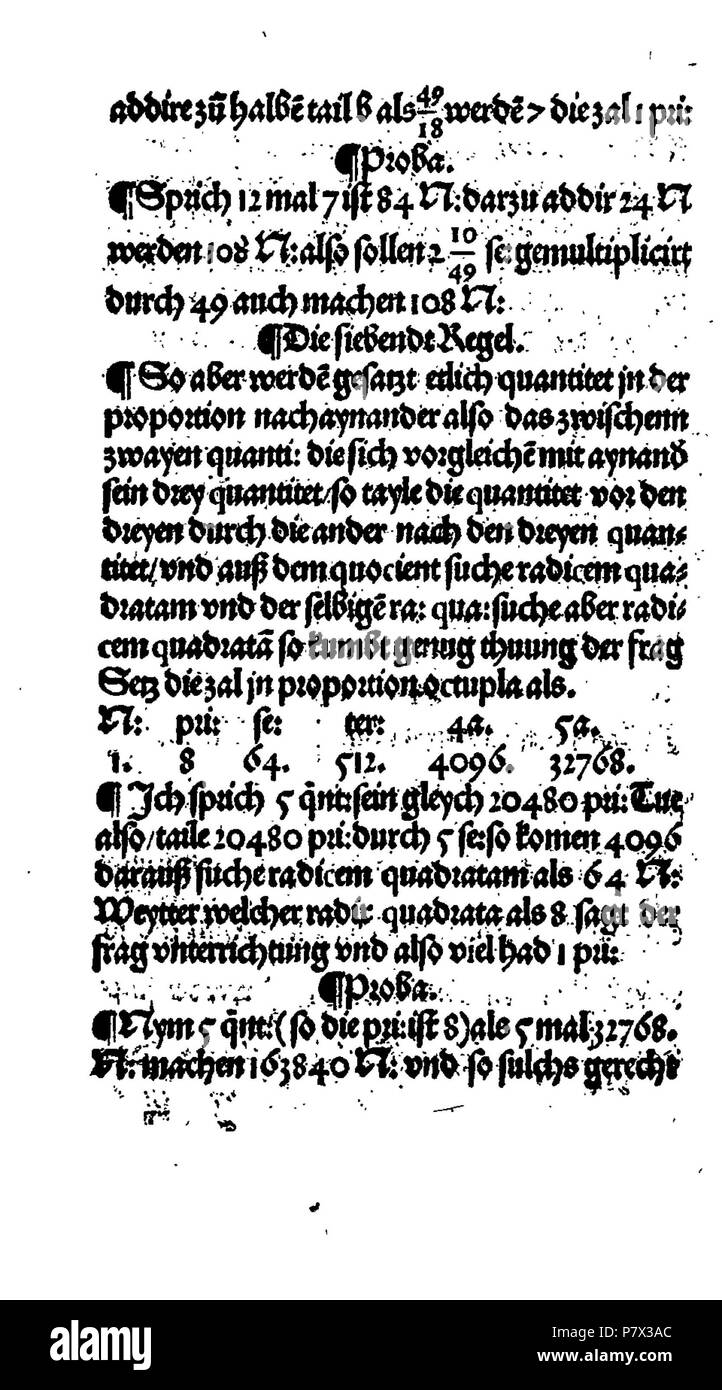 addire zũ halbẽ tail b als 49/18 werdẽ 7 die zal 1 pri:
¶ Proba.
¶ Sprich 12 mal 7 ist 84 N: darzu addir 24 N
werden 108 N: also sollen 2 10/49 se: gemultiplicirt
durch 49 auch machen 108 N:
¶ Die siebendt Regel.
¶ So aber werdẽ gesatzt etlich quantitet jn der
proportion nachaynander also das zwischenn
zwayen quanti: die sich vorgleichẽ mit aynand
sein drey quantitet/so tayle die quantitet vor den
dreyen durch die ander nach den dreyen quan⸗
titet/vnd auß dem quocient suche radicem qua⸗
dratam vnd der selbigẽ ra: qua: suche aber radi⸗
cem quadratã so kumbt genug thuung der frag
Setz die zal jn proportion octupla als.
N: pri: se: ter: 4a. 5a.
1. 8 64. 512. 4096. 32768.
¶ Jch sprich 5 q̃nt: sein gleych 20480 pri: Tue
also/taile 20480 pri: durch 5 se: so komen 4096
darauß suche radicem quadratam als 64 N:
Weytter welcher radix quadrata als 8 sagt der
frag vnterrichtung vnd also viel had 1 pri:
¶ Proba.
¶ Nym 5 q̃nt: (so die pri: ist 8) als 5 mal 32768.
N: machen 163840 N: vnd so sulchs gerecht
alamy
Image ID: P7X3AC
www.alamy.com